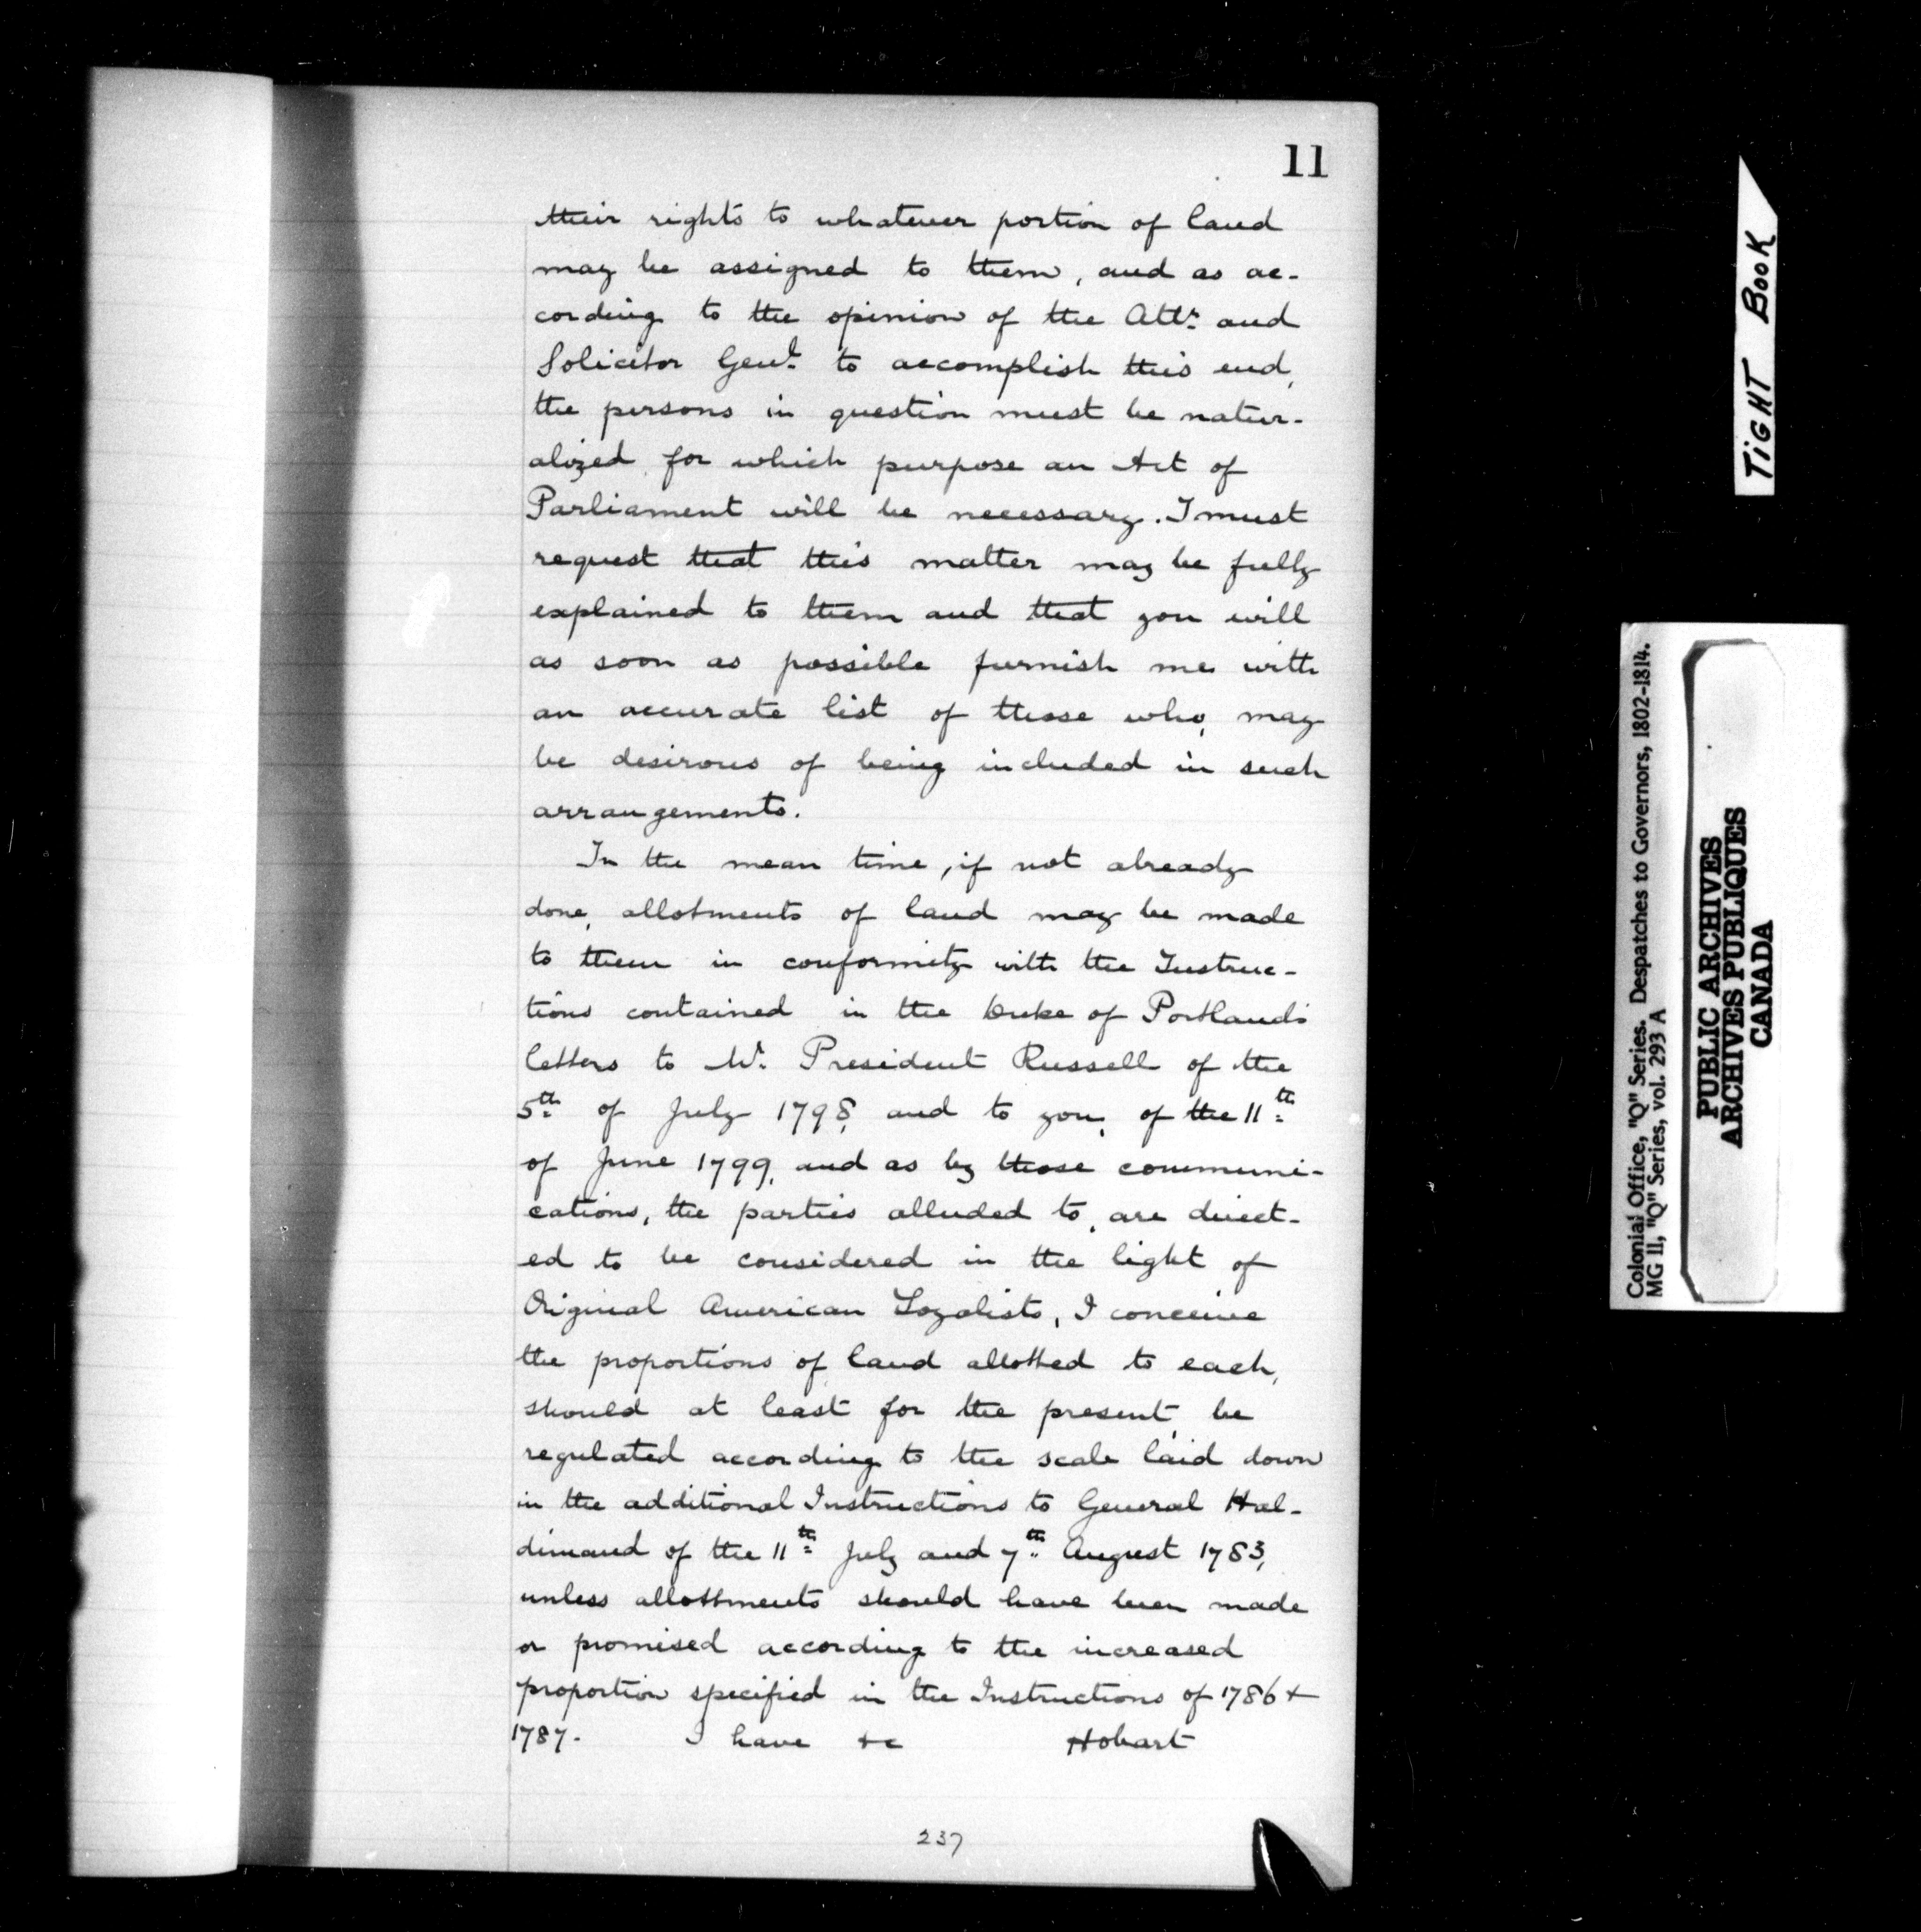 11
their rights to whatever portion of land
may be assigned to them, and as ac-
cording to the opinion of the Attr. and
Solicitor Genl. to accomplish this end,
the persons in question must be natur-
alized, for which purpose an Act of
Parliament will be necessary. I must
request that this matter may be fully
explained to them and that you will
as soon as possible furnish me with
an accurate list of those who, may
be desirous of being included in such
arrangements.
In the mean time, if not already
done, allotments of land may be made
to them in conformity with the Instruc-
tions contained in the Duke of Portland's
letters to Mr. President Russell of the
5th of July 1798, and to you, of the 11th
of June 1799, and as by those communi-
cations, the parties alluded to, are direct-
ed to be considered in the light of
Original American Loyalists, I conceive
the proportions of land allotted to each,
should at least for the present, be
regulated according to the scale laid down
in the additional Instructions to General Hal-
dimand of the 11th July and 7th August 1783,
unless allottments should have been made
or promised according to the increased
proportion specified in the Instructions of 1786 &
1787. I have &c Hobart
237
TIGHT BOOK
Colonial Office, "Q" Series. Despatches to Governors, 1802-1814.
MG 11, "Q" Series, vol. 293 A
PUBLIC ARCHIVES
ARCHIVES PUBLIQUES
CANADA